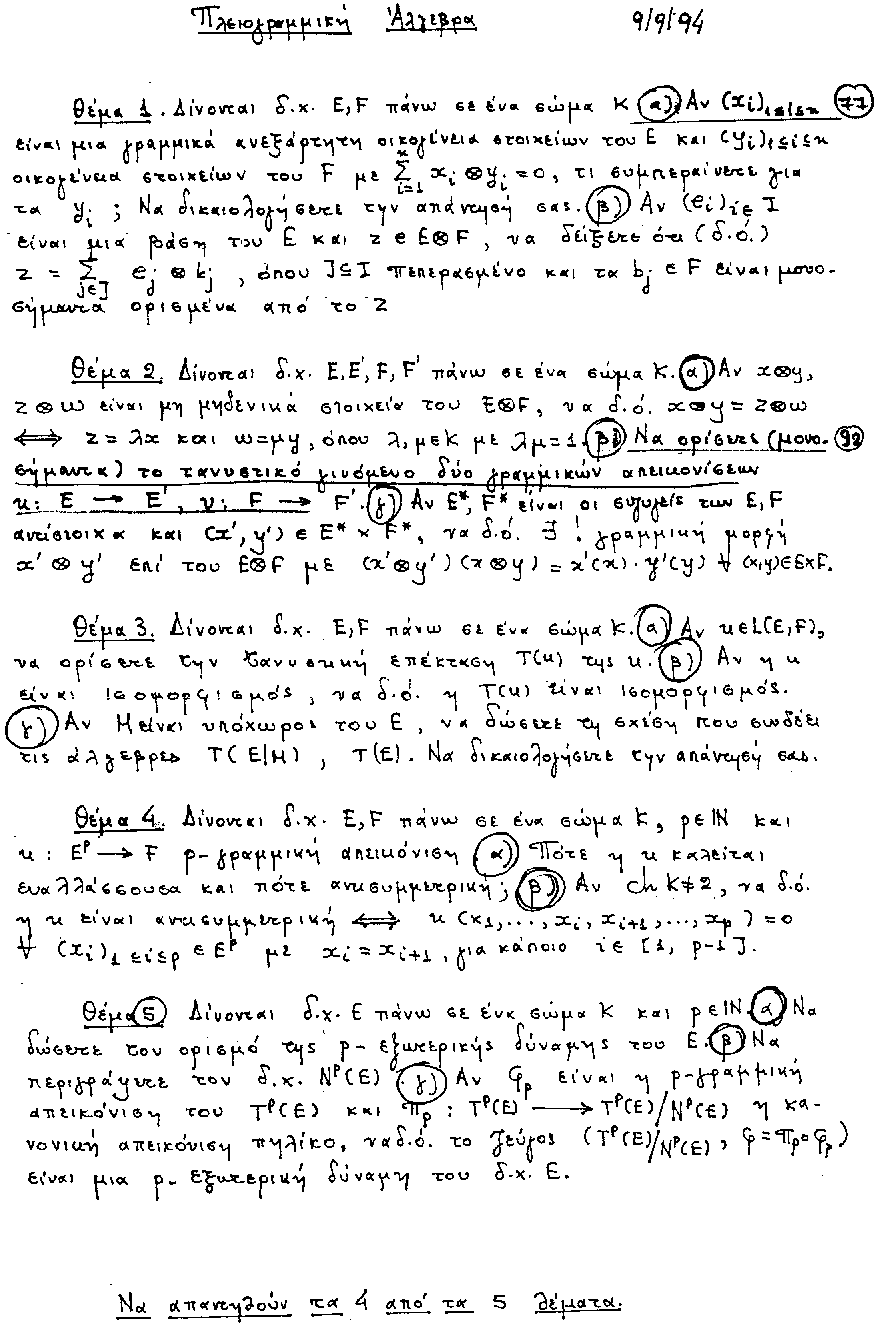 Πλειογραμμική Άλγεβρα 9/9/94
Θέμα 1. Δίνονται δ.χ. E, F πάνω σε ένα σώμα K α) Αν (x_i)_{1≤i≤κ} 77
είναι μια γραμμικά ανεξάρτητη οικογένεια στοιχείων του E και (y_i)_{1≤i≤κ}
οικογένεια στοιχείων του F με Σ_{i=1}^{κ} x_i ⊗ y_i = 0, τι συμπεραίνετε για
τα y_i ; Να δικαιολογήσετε την απάντησή σας. β) Αν (e_i)_{i∈I}
είναι μια βάση του E και z ∈ E⊗F, να δείξετε ότι (δ.ό.)
z = Σ_{j∈J} e_j ⊗ b_j , όπου J⊆I πεπερασμένο και τα b_j ∈ F είναι μονο-
σήμαντα ορισμένα από το z
Θέμα 2. Δίνονται δ.χ. E, E', F, F' πάνω σε ένα σώμα K. α) Αν x⊗y,
z⊗ω είναι μη μηδενικά στοιχεία του E⊗F, να δ.ό. x⊗y = z⊗ω
⟺ z = λx και ω=μy, όπου λ,μ∈K με λμ=1. β) Να ορίσετε (μονο- 92
σήμαντα) το τανυστικό γινόμενο δύο γραμμικών απεικονίσεων
u: E → E', v: F → F'. γ) Αν E*, F* είναι οι συζυγείς των E, F
αντίστοιχα και (x', y') ∈ E* × F*, να δ.ό. ∃ ! γραμμική μορφή
x' ⊗ y' επί του E⊗F με (x'⊗y')(x⊗y) = x'(x)·y'(y) ∀ (x,y)∈E×F.
Θέμα 3. Δίνονται δ.χ. E, F πάνω σε ένα σώμα K. α) Αν u∈L(E,F),
να ορίσετε την τανυστική επέκταση T(u) της u. β) Αν η u
είναι ισομορφισμός, να δ.ό. η T(u) είναι ισομορφισμός.
γ) Αν M είναι υπόχωρος του E, να δώσετε τη σχέση που συνδέει
τις άλγεβρες T(E/M), T(E). Να δικαιολογήσετε την απάντησή σας.
Θέμα 4. Δίνονται δ.χ. E, F πάνω σε ένα σώμα K, p∈ℕ και
u : E^p → F p-γραμμική απεικόνιση α) Πότε η u καλείται
εναλλάσσουσα και πότε αντισυμμετρική; β) Αν ch K≠2, να δ.ό.
η u είναι αντισυμμετρική ⟺ u(x_1,...,x_i, x_{i+1},...,x_p) = 0
∀ (x_i)_{1≤i≤p} ∈ E^p με x_i = x_{i+1}, για κάποιο i∈ [1, p-1].
Θέμα 5 Δίνονται δ.χ. E πάνω σε ένα σώμα K και p∈ℕ. α) Να
δώσετε τον ορισμό της p-εξωτερικής δύναμης του E. β) Να
περιγράψετε τον δ.χ. N^p(E). γ) Αν φ_p είναι η p-γραμμική
απεικόνιση του T^p(E) και π_p : T^p(E) → T^p(E)/N^p(E) η κα-
νονική απεικόνιση πηλίκο, να δ.ό. το ζεύγος (T^p(E)/N^p(E), φ = π_p∘φ_p)
είναι μια p-εξωτερική δύναμη του δ.χ. E.
Να απαντηθούν τα 4 από τα 5 θέματα.